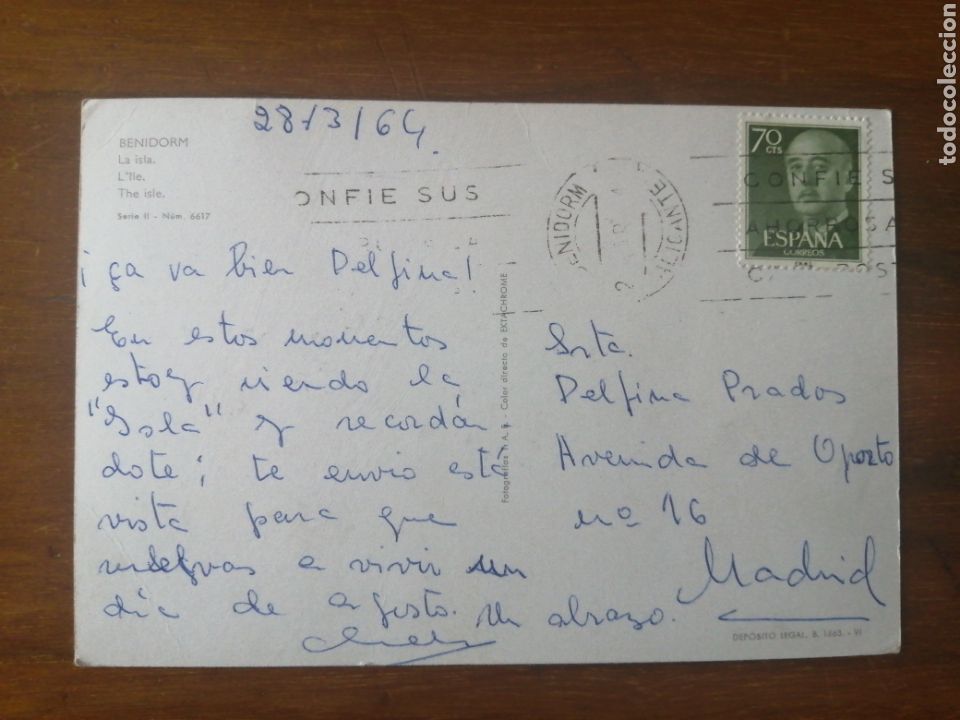 28/3/64
BENIDORM
La isla.
L'Ile.
The isle.
Serie II - Núm. 6617
ONFIE SUS
BENIDORM
ALICANTE
CONFIE S
AHORROS A
70
CTS
ESPAÑA
CORREOS
¡ ça va bien Delfina!
En estos momentos
estoy viendo la
"Isla" y recordán
dote; te envio está
vista para que
vuelvas a vivir un
día de agosto. Un abrazo.
Fotografías A. - Color directo de EKTACHROME
Srta.
Delfina Prados
Avenida de Oporto
nº 16
Madrid
DEPOSITO LEGAL, B. 1663. - VI
todocoleccion